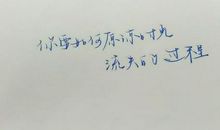 你要如何原谅时光
流失的过程